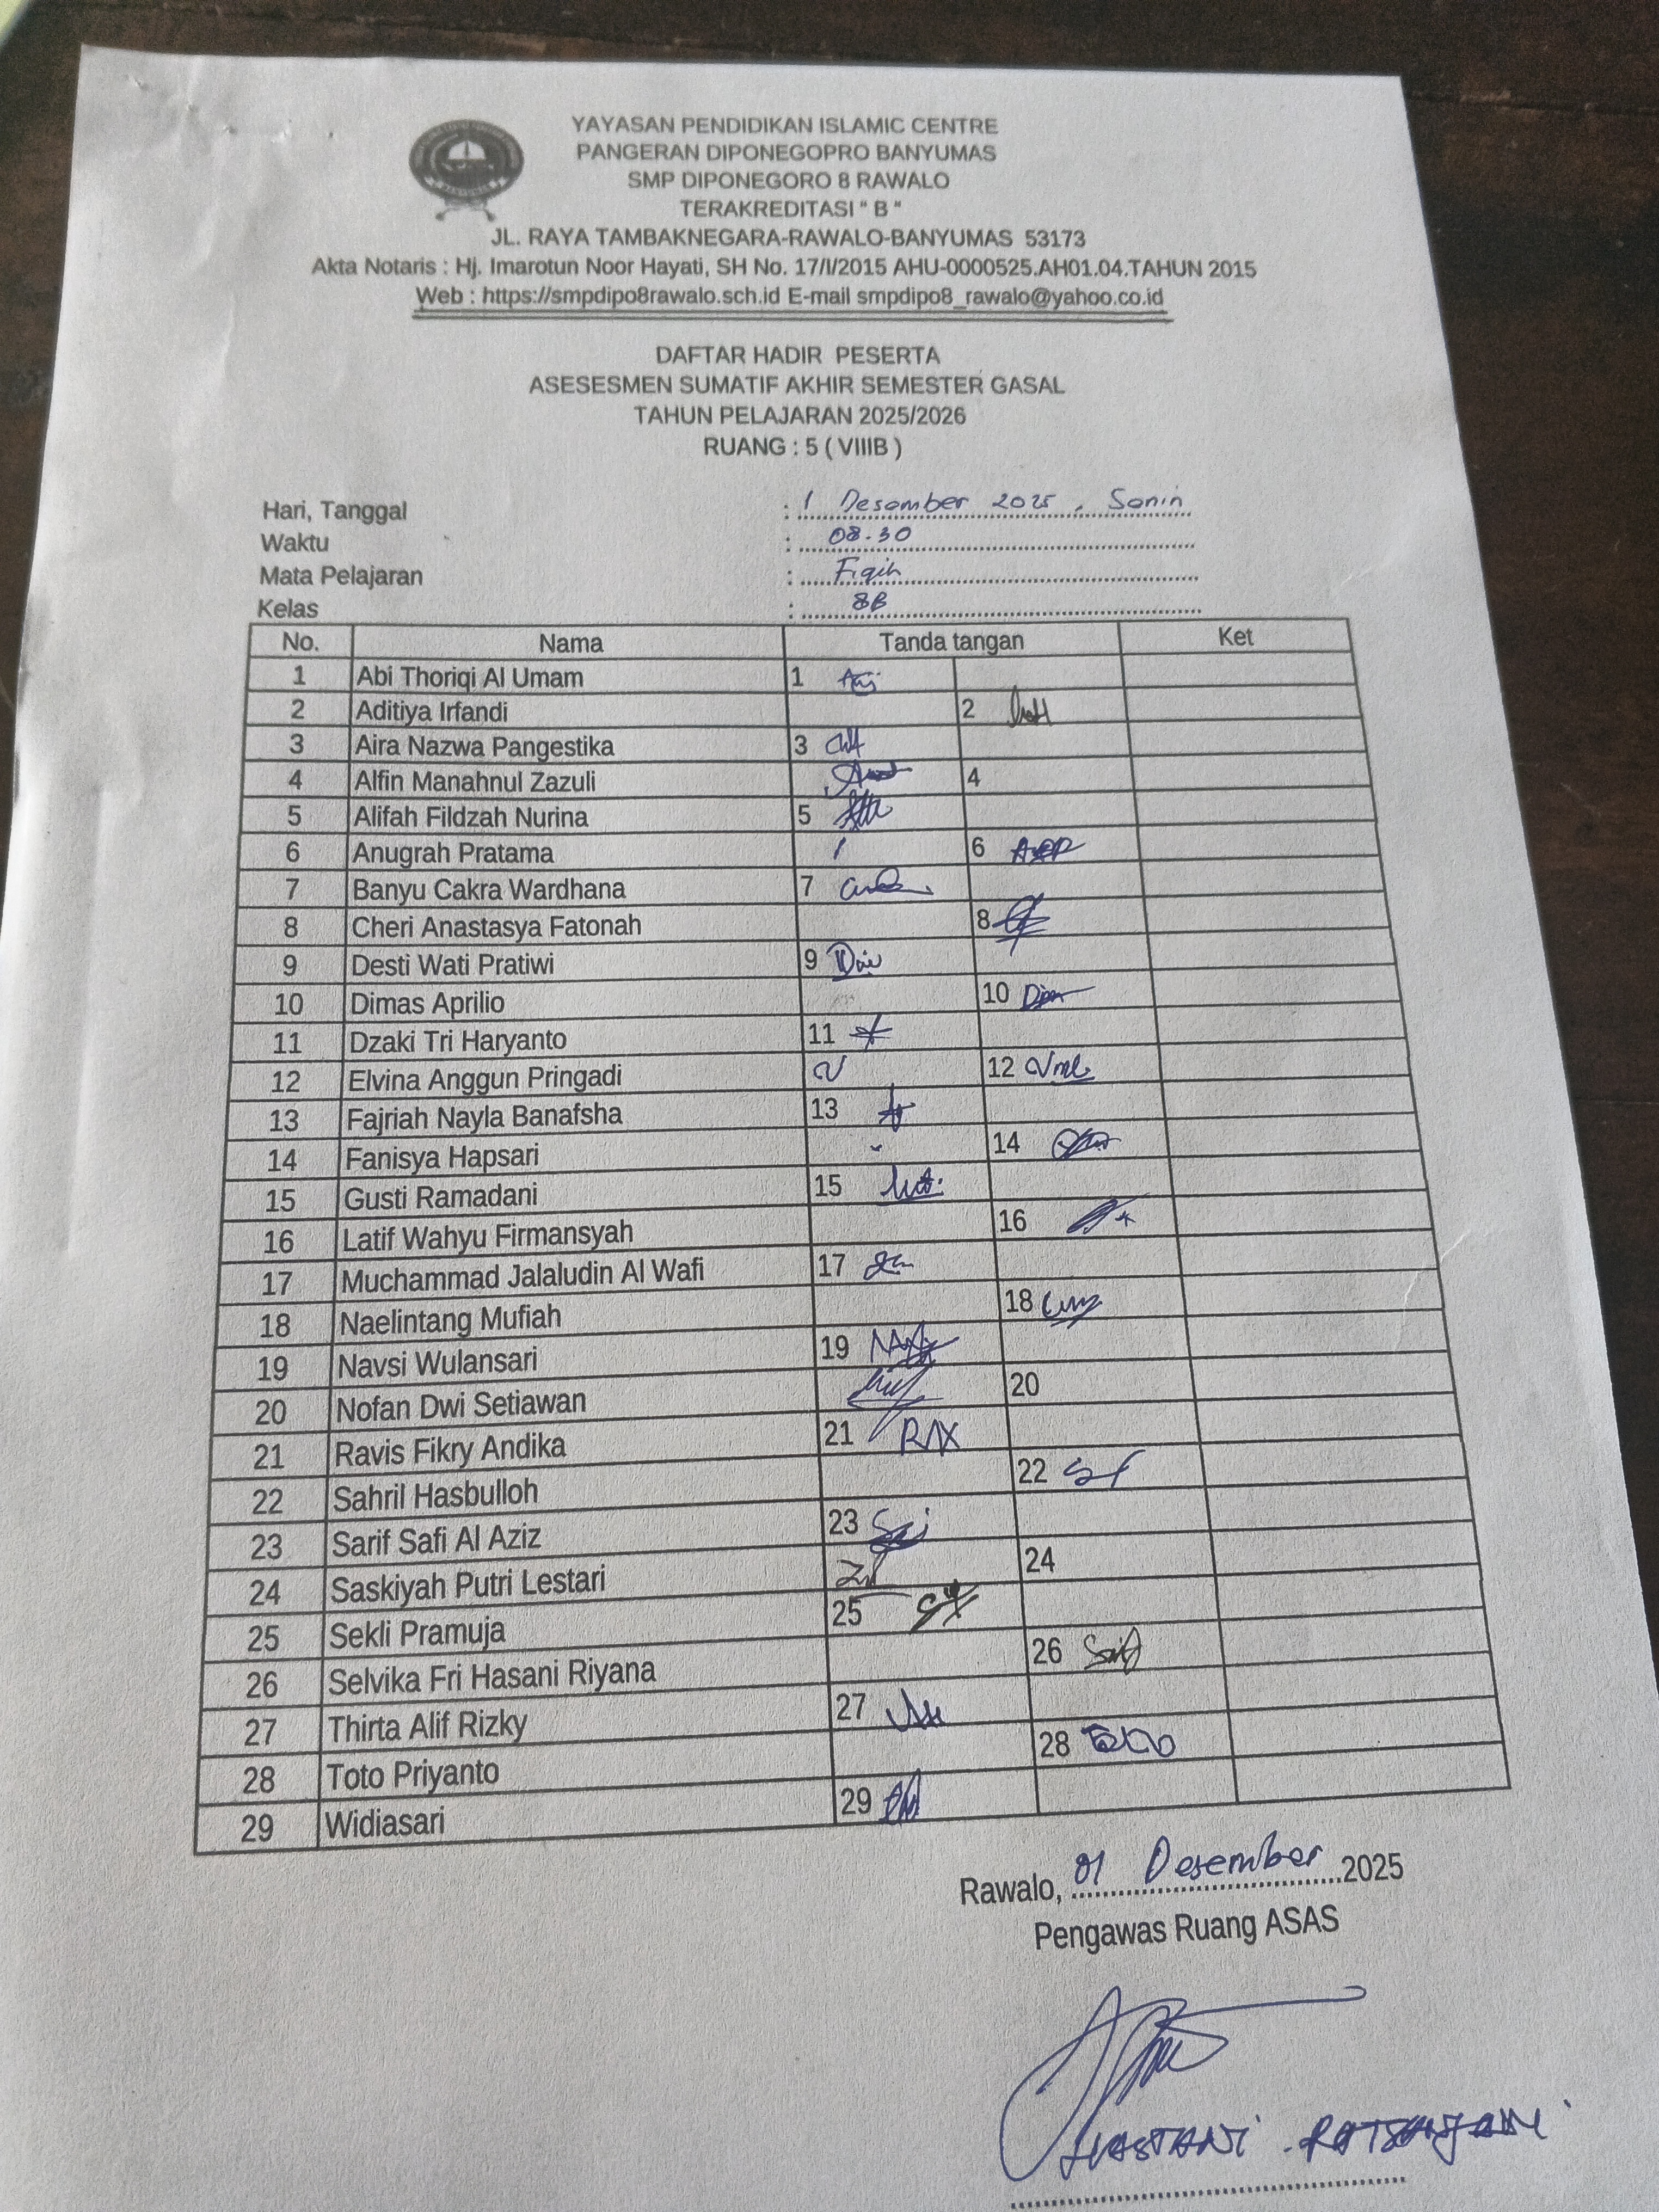 YAYASAN PENDIDIKAN ISLAMIC CENTRE
PANGERAN DIPONEGOPRO BANYUMAS
SMP DIPONEGORO 8 RAWALO
TERAKREDITASI " B "
JL. RAYA TAMBAKNEGARA-RAWALO-BANYUMAS 53173
Akta Notaris : Hj. Imarotun Noor Hayati, SH No. 17/I/2015 AHU-0000525.AH01.04.TAHUN 2015
Web : https://smpdipo8rawalo.sch.id E-mail smpdipo8_rawalo@yahoo.co.id
DAFTAR HADIR PESERTA
ASESESMEN SUMATIF AKHIR SEMESTER GASAL
TAHUN PELAJARAN 2025/2026
RUANG : 5 ( VIIIB )
Hari, Tanggal : 1 Desember 2025 , Senin
Waktu : 08.30
Mata Pelajaran : Fiqih
Kelas : 8B
No. Nama Tanda tangan Ket
1 Abi Thoriqi Al Umam 1
2 Aditiya Irfandi 2
3 Aira Nazwa Pangestika 3
4 Alfin Manahnul Zazuli 4
5 Alifah Fildzah Nurina 5
6 Anugrah Pratama 6
7 Banyu Cakra Wardhana 7
8 Cheri Anastasya Fatonah 8
9 Desti Wati Pratiwi 9
10 Dimas Aprilio 10
11 Dzaki Tri Haryanto 11
12 Elvina Anggun Pringadi 12
13 Fajriah Nayla Banafsha 13
14 Fanisya Hapsari 14
15 Gusti Ramadani 15
16 Latif Wahyu Firmansyah 16
17 Muchammad Jalaludin Al Wafi 17
18 Naelintang Mufiah 18
19 Navsi Wulansari 19
20 Nofan Dwi Setiawan 20
21 Ravis Fikry Andika 21
22 Sahril Hasbulloh 22
23 Sarif Safi Al Aziz 23
24 Saskiyah Putri Lestari 24
25 Sekli Pramuja 25
26 Selvika Fri Hasani Riyana 26
27 Thirta Alif Rizky 27
28 Toto Priyanto 28
29 Widiasari 29
Rawalo, 01 Desember 2025
Pengawas Ruang ASAS